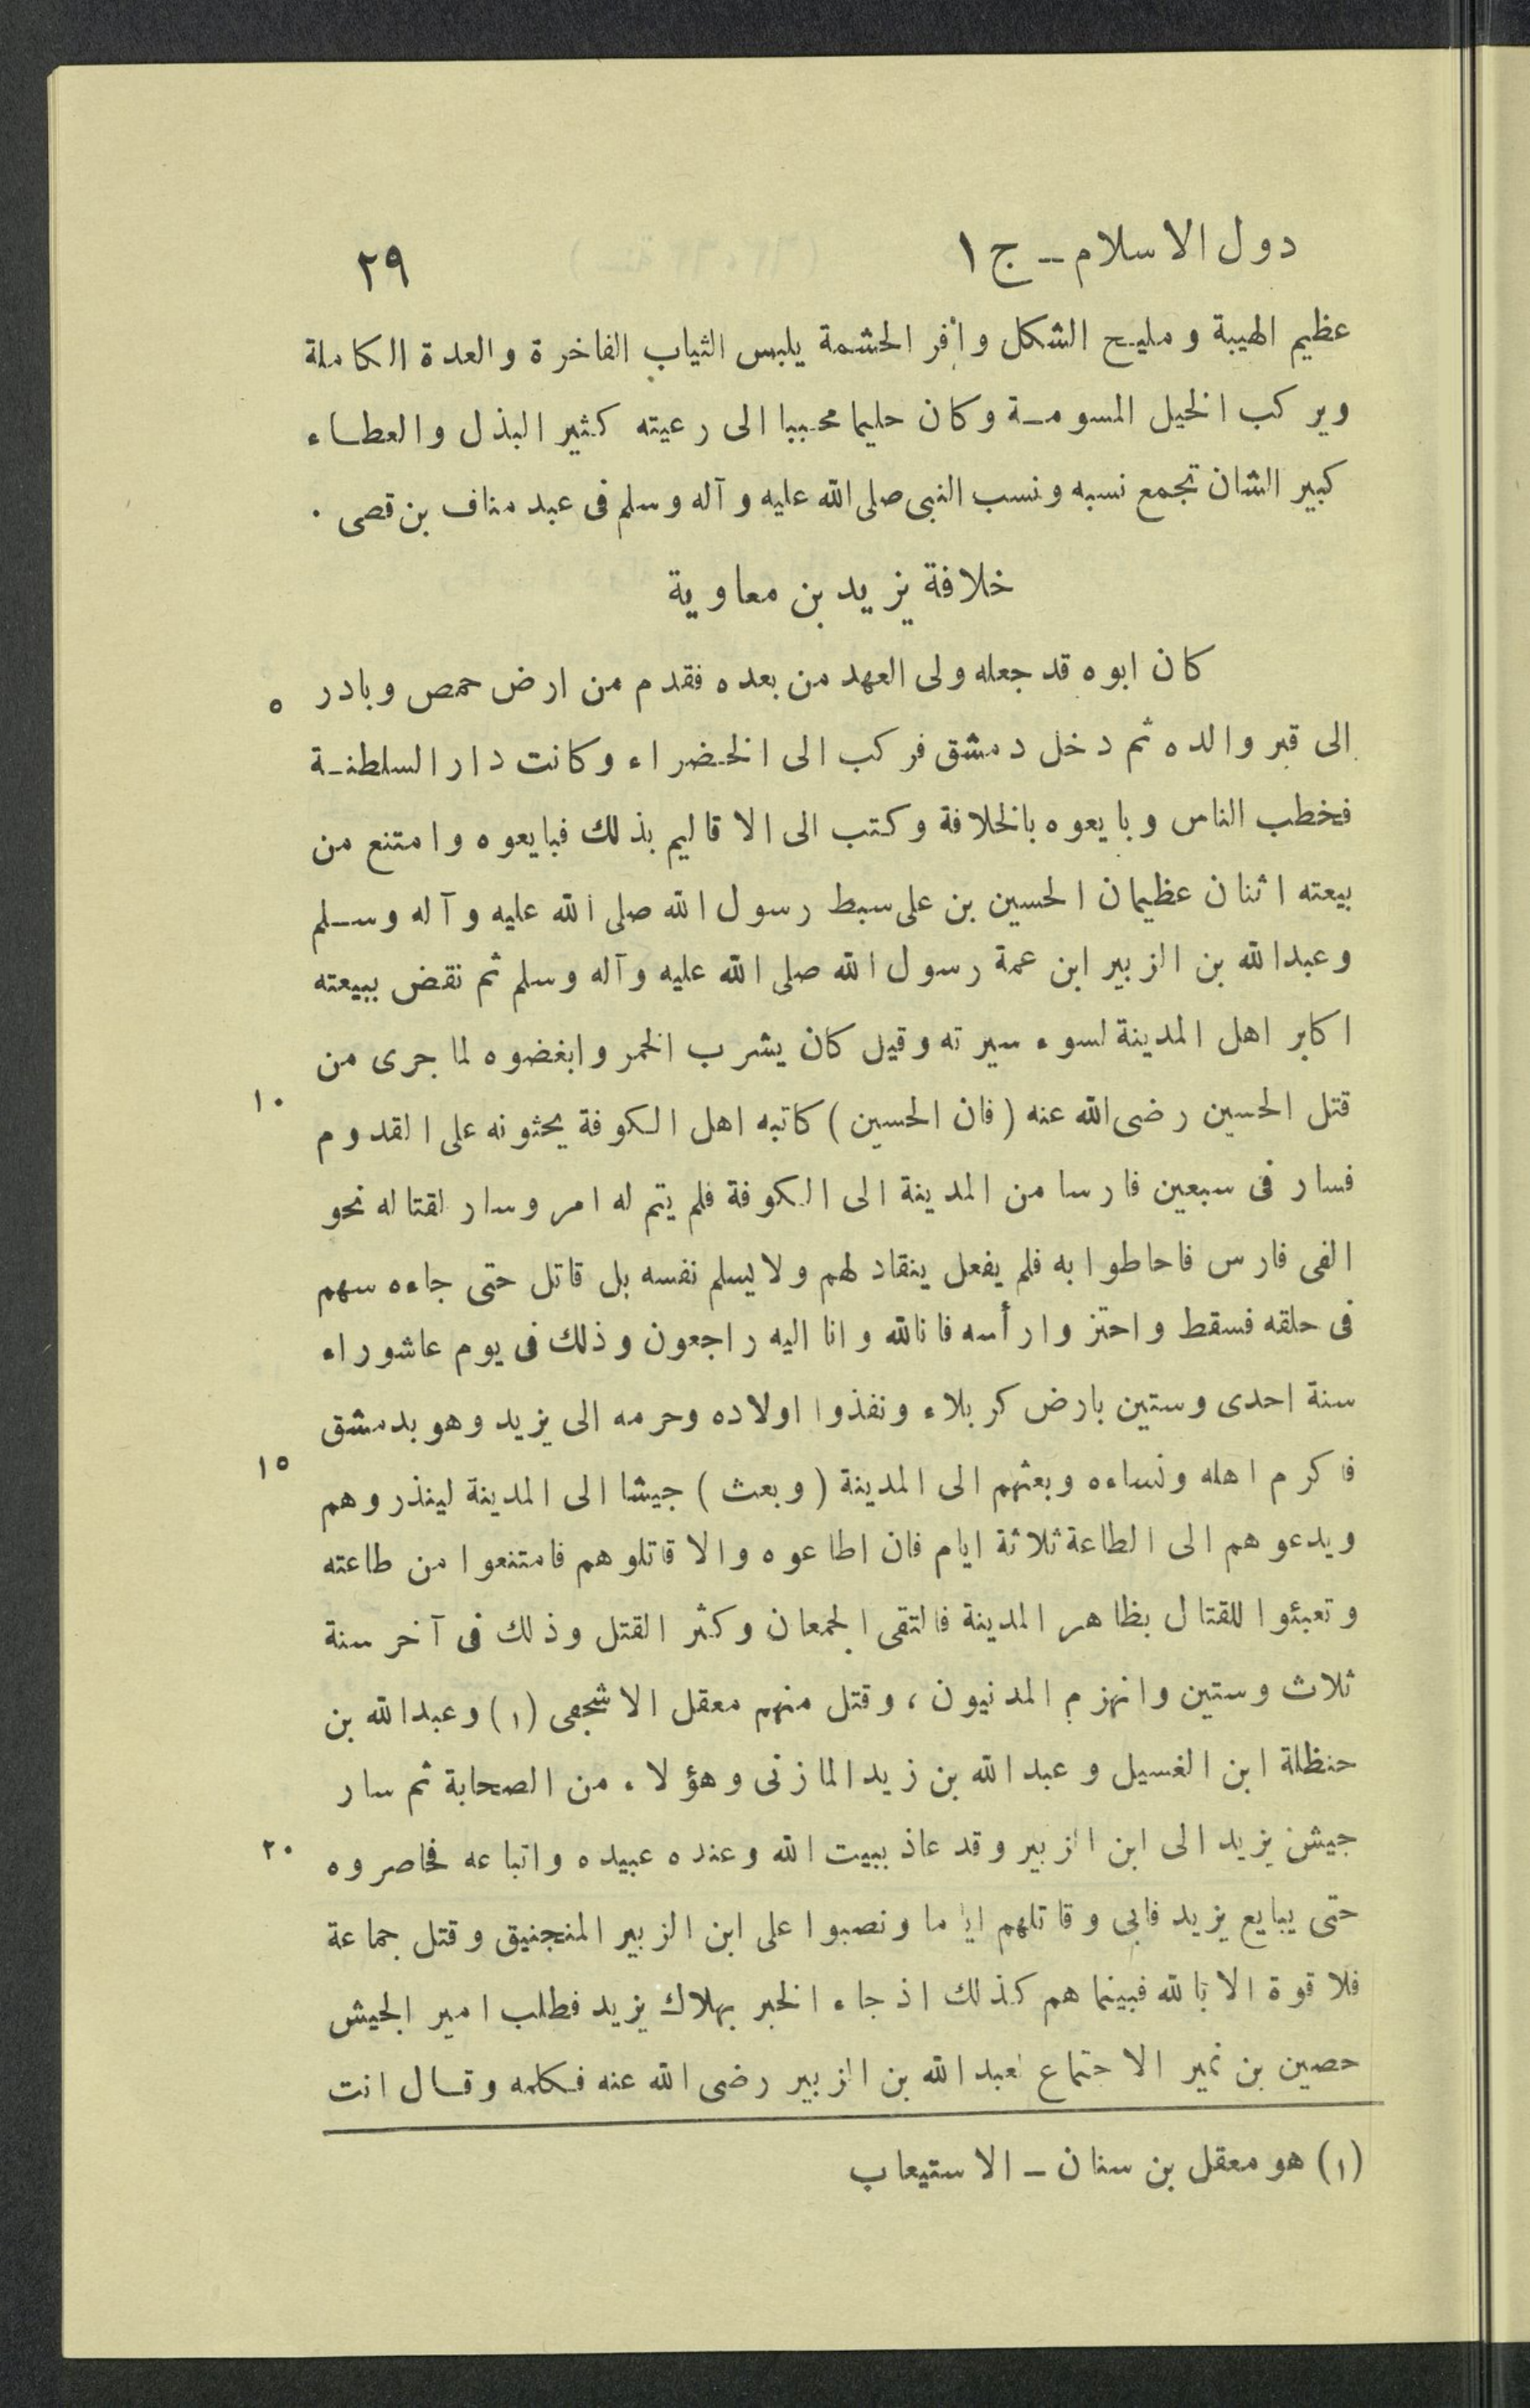 دول الاسلام - ج ١ ٢٩
عظيم الهيبة و مليح الشكل وافر الحشمة يلبس الثياب الفاخرة والعدة الكاملة
ويركب الخيل المسومة وكان حليما محببا الى رعيته كثير البذل والعطاء
كبير الشان تجمع نسبه ونسب النبى صلى الله عليه وآله وسلم فى عبد مناف بن قصى .
خلافة يزيد بن معاوية
كان ابوه قد جعله ولى العهد من بعده فقدم من ارض حمص وبادر ٥
الى قبر والده ثم دخل دمشق فركب الى الخضراء وكانت دار السلطنة
فخطب الناس وبايعوه بالخلافة وكتب الى الاقاليم بذلك فبايعوه وامتنع من
بيعته اثنان عظيمان الحسين بن على سبط رسول الله صلى الله عليه وآله وسلم
وعبدالله بن الزبير ابن عمة رسول الله صلى الله عليه وآله وسلم ثم نقض ببيعته
اكابر اهل المدينة لسوء سيرته وقيل كان يشرب الخمر وابغضوه لما جرى من
قتل الحسين رضى الله عنه (فان الحسين) كاتبه اهل الكوفة يحثونه على القدوم ١٠
فسار فى سبعين فارسا من المدينة الى الكوفة فلم يتم له امر وسار لقتاله نحو
الفى فارس فاحاطوا به فلم يفعل ينقاد لهم ولا يسلم نفسه بل قاتل حتى جاءه سهم
فى حلقه فسقط واحتزوا رأسه فانالله وانا اليه راجعون وذلك فى يوم عاشوراء
سنة احدى وستين بارض كربلاء ونفذوا اولاده وحرمه الى يزيد وهو بدمشق
فاكرم اهله ونساءه وبعثهم الى المدينة (وبعث) جيشا الى المدينة لينذروهم ١٥
ويدعوهم الى الطاعة ثلاثة ايام فان اطاعوه والا قاتلوهم فامتنعوا من طاعته
وتعبئوا للقتال بظاهر المدينة فالتقى الجمعان وكثر القتل وذلك فى آخر سنة
ثلاث وستين وانهزم المدنيون، وقتل منهم معقل الاشجعى (١) وعبدالله بن
حنظلة ابن الغسيل وعبدالله بن زيد المازنى وهؤلاء من الصحابة ثم سار
جيش يزيد الى ابن الزبير وقد عاذ ببيت الله وعنده عبيده واتباعه فحاصروه ٢٠
حتى يبايع يزيد فابى وقاتلهم اياما ونصبوا على ابن الزبير المنجنيق وقتل جماعة
فلا قوة الا بالله فبينما هم كذلك اذ جاء الخبر بهلاك يزيد فطلب امير الجيش
حصين بن نمير الاجتماع لعبدالله بن الزبير رضى الله عنه فكلمه وقال انت
(١) هو معقل بن سنان - الاستيعاب